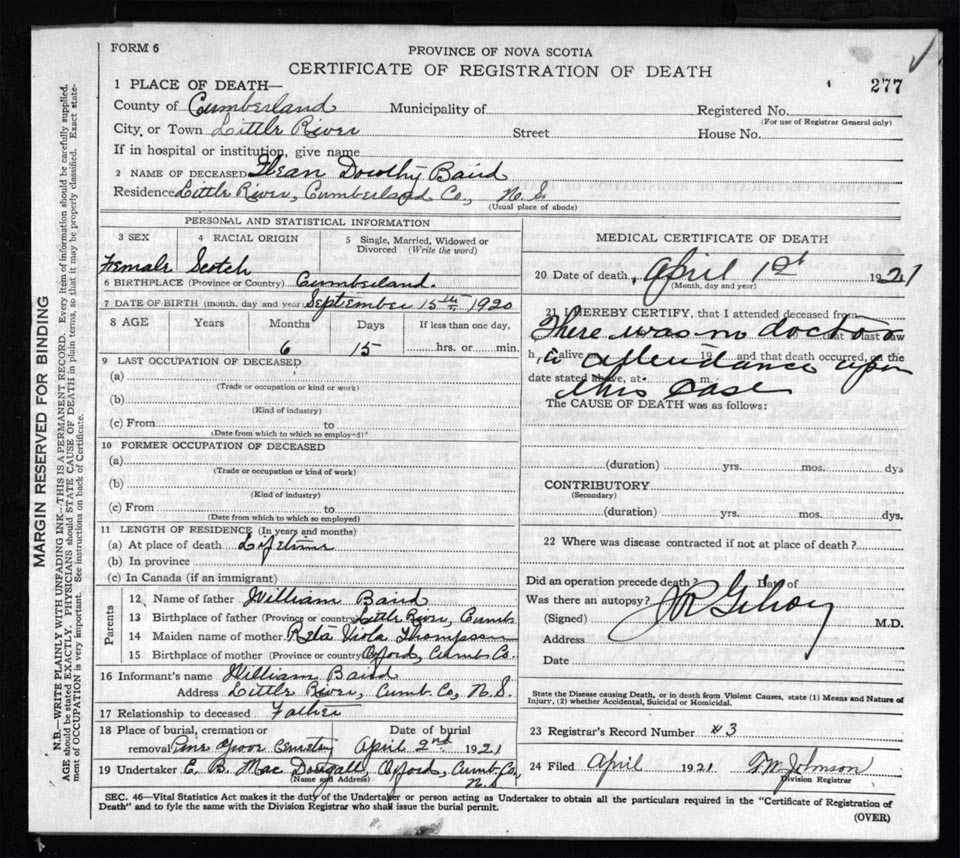 FORM 6
PROVINCE OF NOVA SCOTIA
CERTIFICATE OF REGISTRATION OF DEATH
277
1 PLACE OF DEATH—
County of Cumberland Municipality of Registered No.
(For use of Registrar General only)
City or Town Little River Street House No.
If in hospital or institution, give name
2 NAME OF DECEASED Dorothy Baird
Residence Little River, Cumberland Co., N. S.
(Usual place of abode)
PERSONAL AND STATISTICAL INFORMATION
3 SEX 4 RACIAL ORIGIN 5 Single, Married, Widowed or Divorced (Write the word)
Female Scotch
6 BIRTHPLACE (Province or Country) Cumberland.
7 DATE OF BIRTH (month, day and year) September 15th 1920
8 AGE Years Months Days If less than one day,
6 15 hrs. or min.
9 LAST OCCUPATION OF DECEASED
(a)
(Trade or occupation or kind or work)
(b)
(Kind of industry)
(c) From to
(Date from which to which so employed)
10 FORMER OCCUPATION OF DECEASED
(a)
(Trade or occupation or kind of work)
(b)
(Kind of industry)
(c) From to
(Date from which to which so employed)
11 LENGTH OF RESIDENCE (In years and months)
(a) At place of death Lifetime
(b) In province
(c) In Canada (if an immigrant)
Parents
12 Name of father William Baird
13 Birthplace of father (Province or country) Little River, Cumb.
14 Maiden name of mother Reta Viola Thompson
15 Birthplace of mother (Province or country) Oxford, Cumb Co.
16 Informant's name William Baird
Address Little River, Cumb. Co, N. S.
17 Relationship to deceased Father
18 Place of burial, cremation or Date of burial
removal Pine Grove Cemetery April 2nd 1921
19 Undertaker E. B. Mac Dougall, Oxford, Cumb. Co, N. S
(Name and Address)
MEDICAL CERTIFICATE OF DEATH
20 Date of death April 1st 1921
(Month, day and year)
21 I HEREBY CERTIFY, that I attended deceased from
There was no doctor
that I last saw
h alive 19 and that death occurred, on the
in attendance upon
date stated above, at m.
this case
The CAUSE OF DEATH was as follows:
(duration) yrs. mos. dys
CONTRIBUTORY
(Secondary)
(duration) yrs. mos. dys.
22 Where was disease contracted if not at place of death?
Did an operation precede death? Day of
Was there an autopsy?
(Signed) M.D.
Address
Date
State the Disease causing Death, or in death from Violent Causes, state (1) Means and Nature of
Injury, (2) whether Accidental, Suicidal or Homicidal.
23 Registrar's Record Number # 3
24 Filed April 1921 Johnson
Division Registrar
SEC. 46—Vital Statistics Act makes it the duty of the Undertaker or person acting as Undertaker to obtain all the particulars required in the "Certificate of Registration of
Death" and to fyle the same with the Division Registrar who shall issue the burial permit.
(OVER)
MARGIN RESERVED FOR BINDING
N.B.—WRITE PLAINLY WITH UNFADING INK—THIS IS A PERMANENT RECORD. Every item of information should be carefully supplied.
AGE should be stated EXACTLY. PHYSICIANS should STATE CAUSE OF DEATH in plain terms, so that it may be properly classified. Exact state-
ment of OCCUPATION is very important. See instructions on back of Certificate.